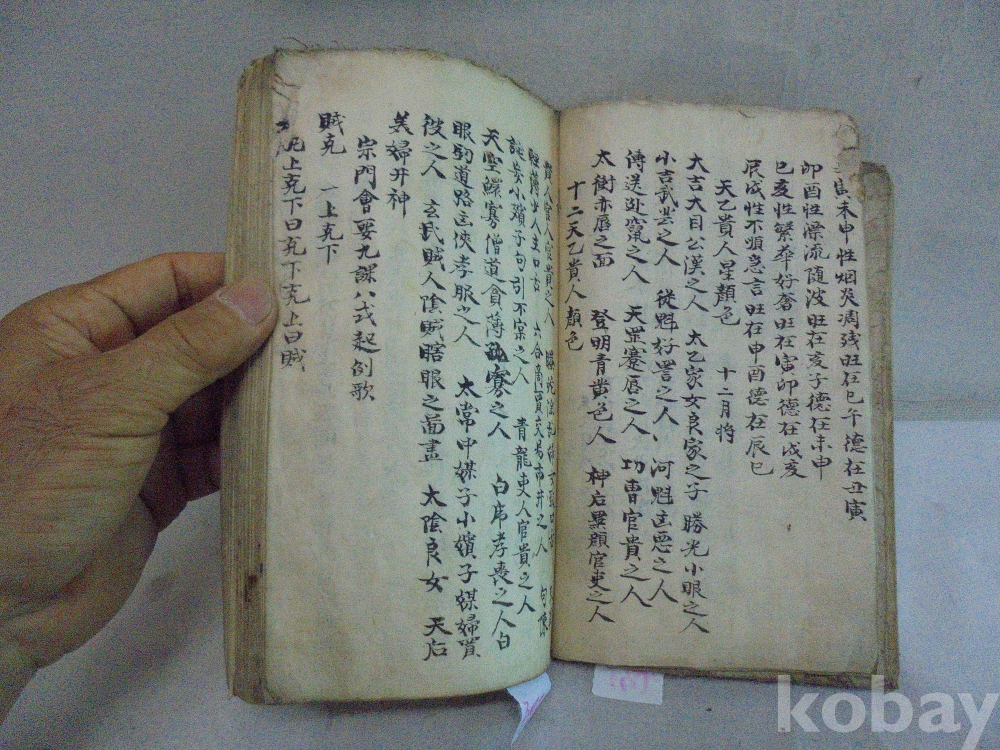 寅未申性烟炎凋残旺在巳午德在丑寅
卯酉性漂流随波旺在亥子德在未申
巳亥性繁華好奢旺在寅卯德在戌亥
辰戌性不順急言旺在申酉德在辰巳
天乙貴人星顏色 十二月將
大吉大目公漢之人 太乙家女良家之子 勝光小眼之人
小吉武芸之人 從魁好詈之人、河魁凶惡之人
傳送之人 天罡蹇唇之人 功曹官貴之人
太衝亦唇之面 登明青黄色人 神后黑顏官吏之人
十二天乙貴人顏色
貴人官人官貴之人
口舌 六合商賈交易市井之人
小殯子句引不实之人 青龍吏人官貴之人
天空鰥寡僧道貪薄孤寡之人 白虎孝喪之人白
眼到道路凶俠孝服少人 太常中媒子小嬪子媒婦買
役之人 玄武賊人陰賊瞎眼之面盡 太陰良女 天后
美婦并神
宗門會要九課八式起例歌
賊克 一上克下
凡上克下曰克下克上曰賊
kobay